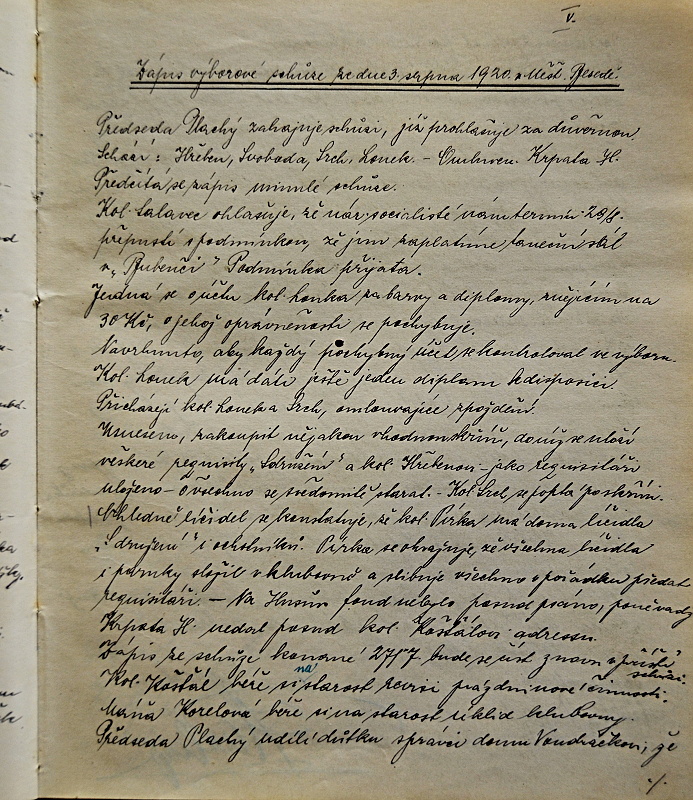 V.
Zápis výborové schůze ze dne 3. srpna 1920 v Měšť. Besedě.
Předseda Plachý zahajuje schůzi, již prohlašuje za důvěrnou.
Schází: Hřeben, Svoboda, Srch, Lonek. – Omluven Krpata H.
Předčítá se zápis minulé schůze.
Kol. Salavec ohlašuje, že nár. socialisté nám termín 28/8.
připustí s podmínkou, že jim zaplatíme taneční sál
v „Bubenči" Podmínka přijata.
Jedná se o účtu kol. Lonka za barvy a diplomy, znějícím na
30 Kč, o jehož oprávněnosti se pochybuje.
Navrhnuto, aby každý pochybný účet se kontroloval ve výboru.
Kol. Lonek má dáti ještě jeden diplom k disposici.
Přicházejí kol. Lonek a Srch, omlouvajíce zpoždění.
Usneseno, zakoupit nějakou vhodnou skříň, do níž se uloží
veškeré requisity „Sdružení" a kol. Hřebenovi – jako requisitáři
uloženo – o všechno se svědomitě starat. – Kol. Srch se poptá po skříni.
Ohledně líčidel se konstatuje, že kol. Pírka má doma líčidla
„Sdružení" i ochotníků. Pírka se ohrazuje, že všechna líčidla
i paruky složil v klubovně a slibuje všechno v pořádku předat
requisitáři. – Na Husův fond nebylo posud psáno, poněvadž
Krpata H. nedal posud kol. Košťálovi adresu.
Zápis ze schůze konané 27/7 bude se číst znovu v příští
schůzi.
Kol. Košťál béře si na starost revisi prázdninové činnosti.
Máňa Korelová béře si na starost úklid klubovny.
Předseda Plachý udílí důtku správci domu Vondráčkovi, že
./.